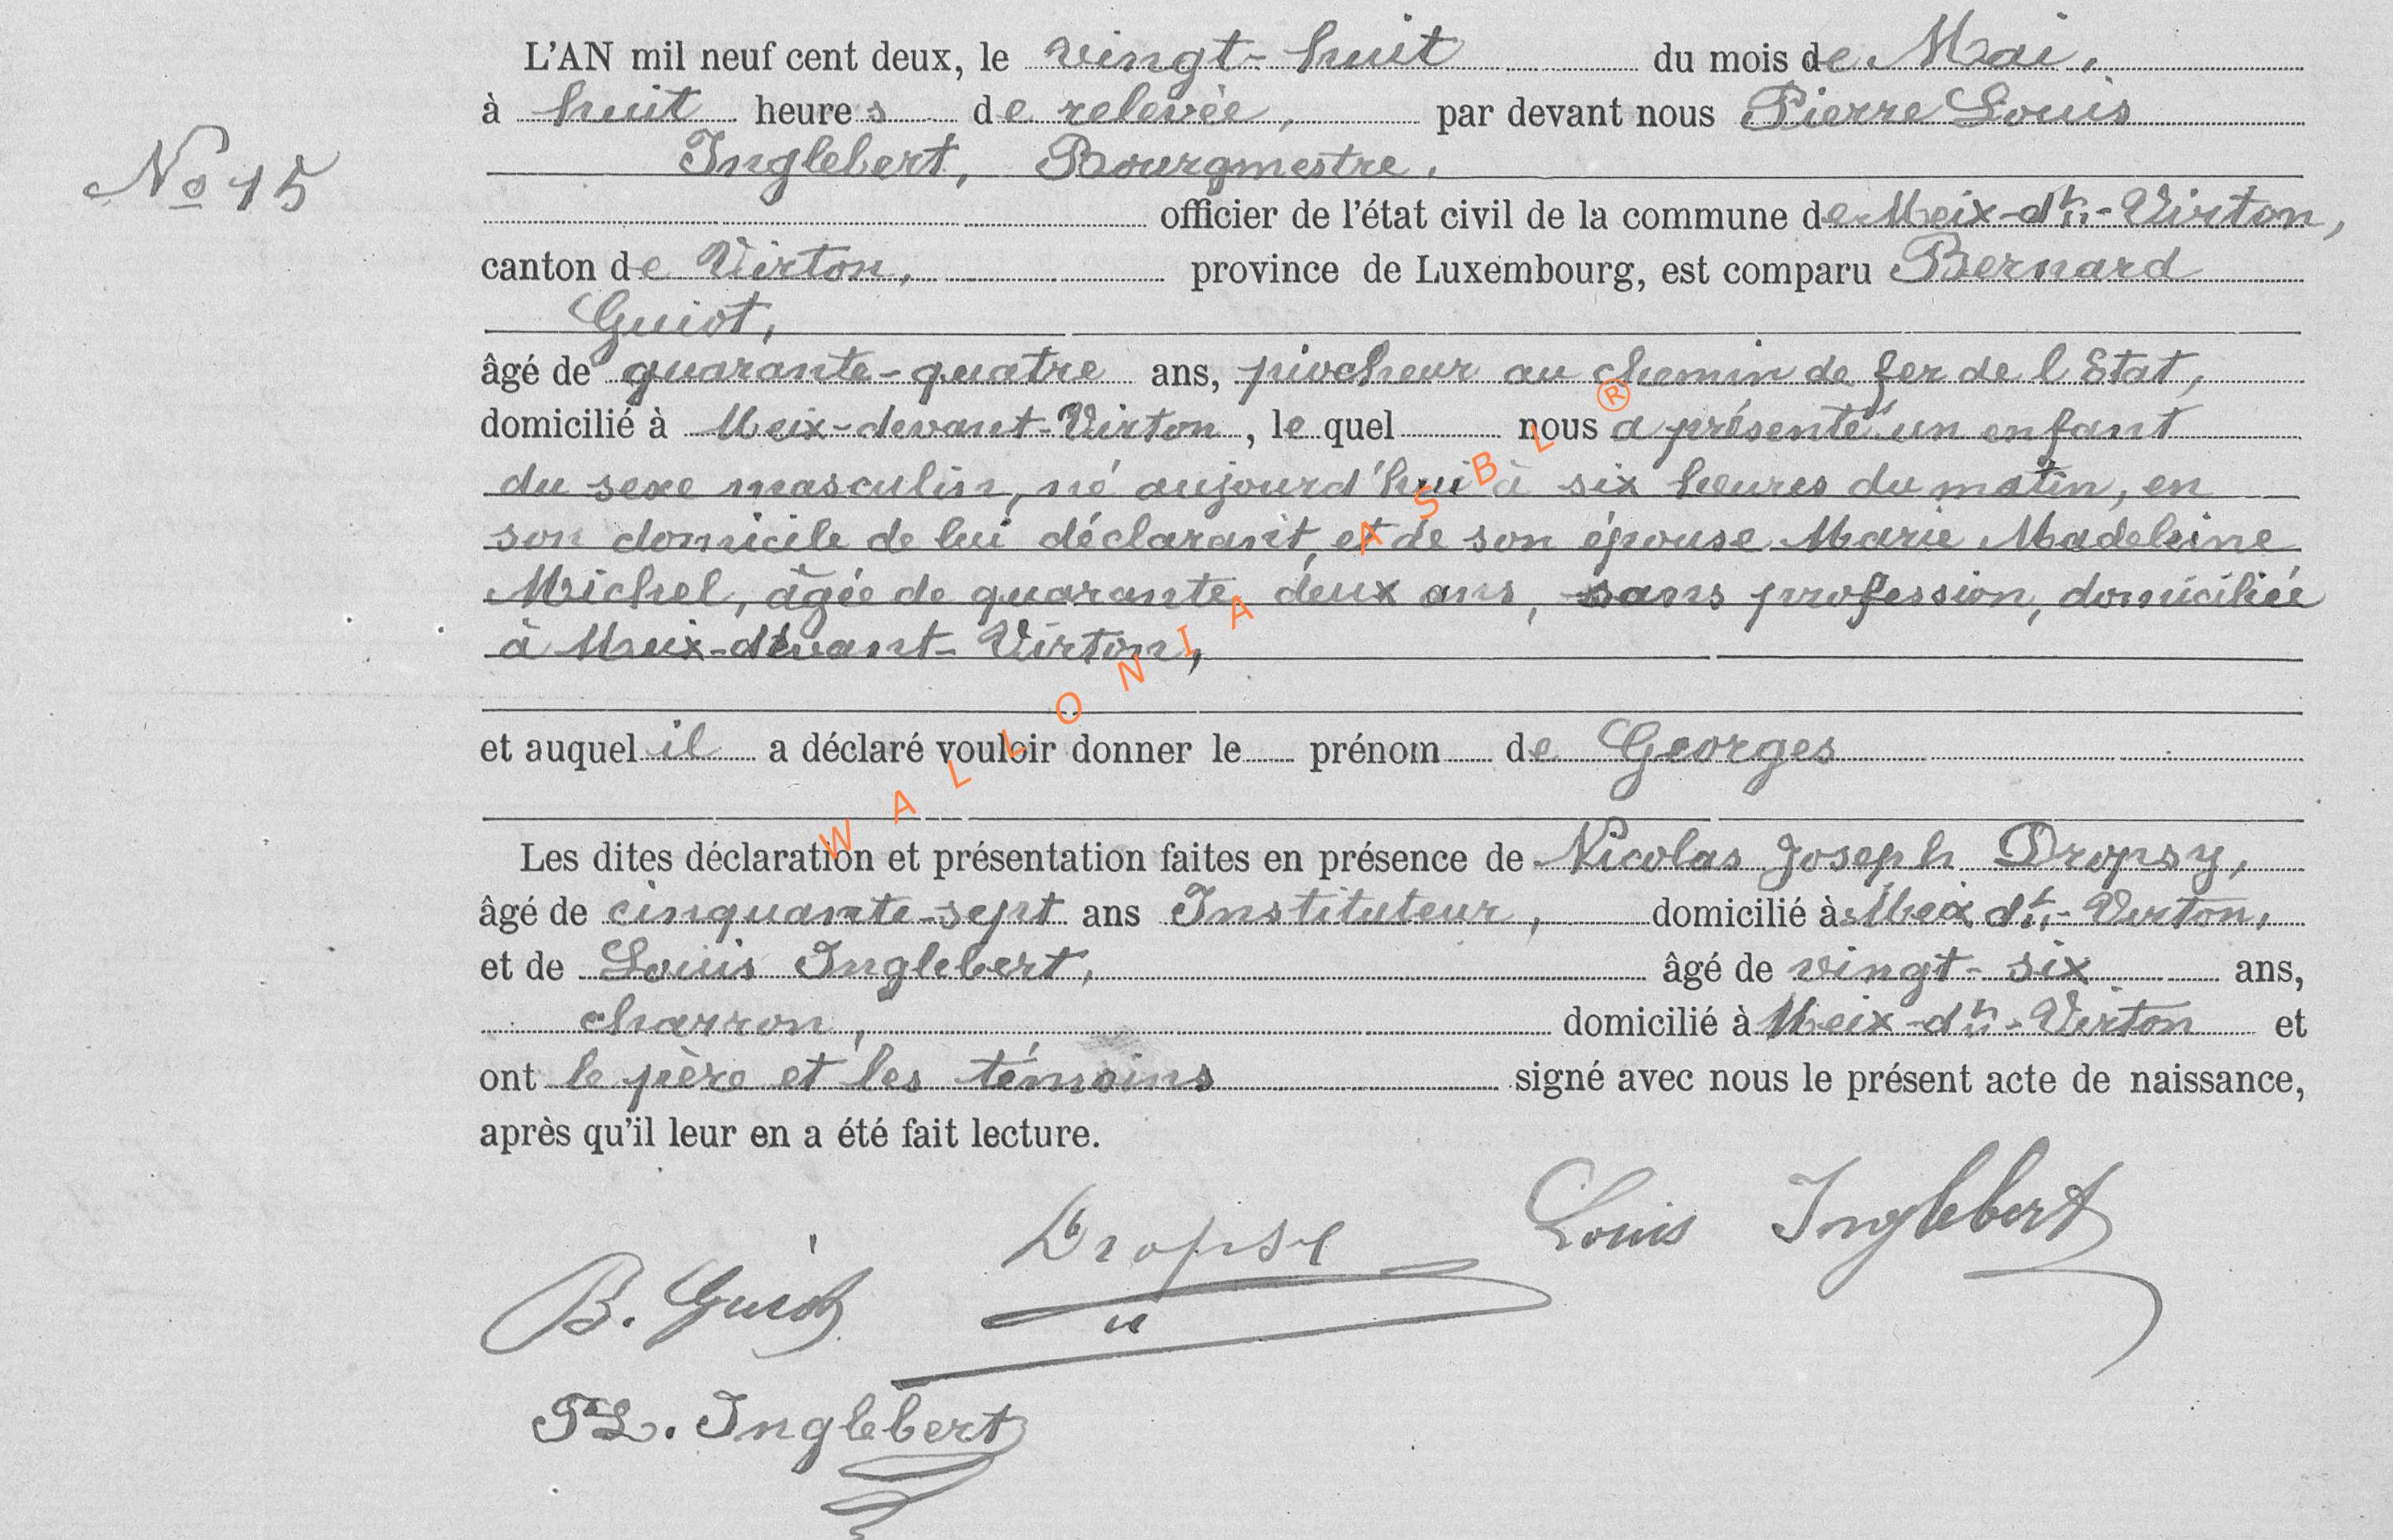 L'AN mil neuf cent deux, le vingt-huit du mois de Mai,
à huit heures de relevée, par devant nous Pierre Louis
No 15
Inglebert, Bourgmestre,
officier de l'état civil de la commune de Meix-dt-Virton,
canton de Virton, province de Luxembourg, est comparu Bernard
Guiot,
âgé de quarante-quatre ans, piocheur au chemin de fer de l'Etat,
domicilié à Meix-devant-Virton, le quel nous a présenté un enfant
du sexe masculin, né aujourd'hui à six heures du matin, en
son domicile de lui déclarant, et de son épouse Marie Madeleine
Michel, âgée de quarante deux ans, sans profession, domiciliée
à Meix-devant-Virton,
et auquel il a déclaré vouloir donner le prénom de Georges
Les dites déclaration et présentation faites en présence de Nicolas Joseph Dropsy,
âgé de cinquante-sept ans Instituteur, domicilié à Meix dt-Virton,
et de Louis Inglebert, âgé de vingt-six ans,
charron, domicilié à Meix-dt-Virton et
ont le père et les témoins signé avec nous le présent acte de naissance,
après qu'il leur en a été fait lecture.
Louis Inglebert
Dropsy
B. Guiot
PL. Inglebert
WALLONIA ASBL ®